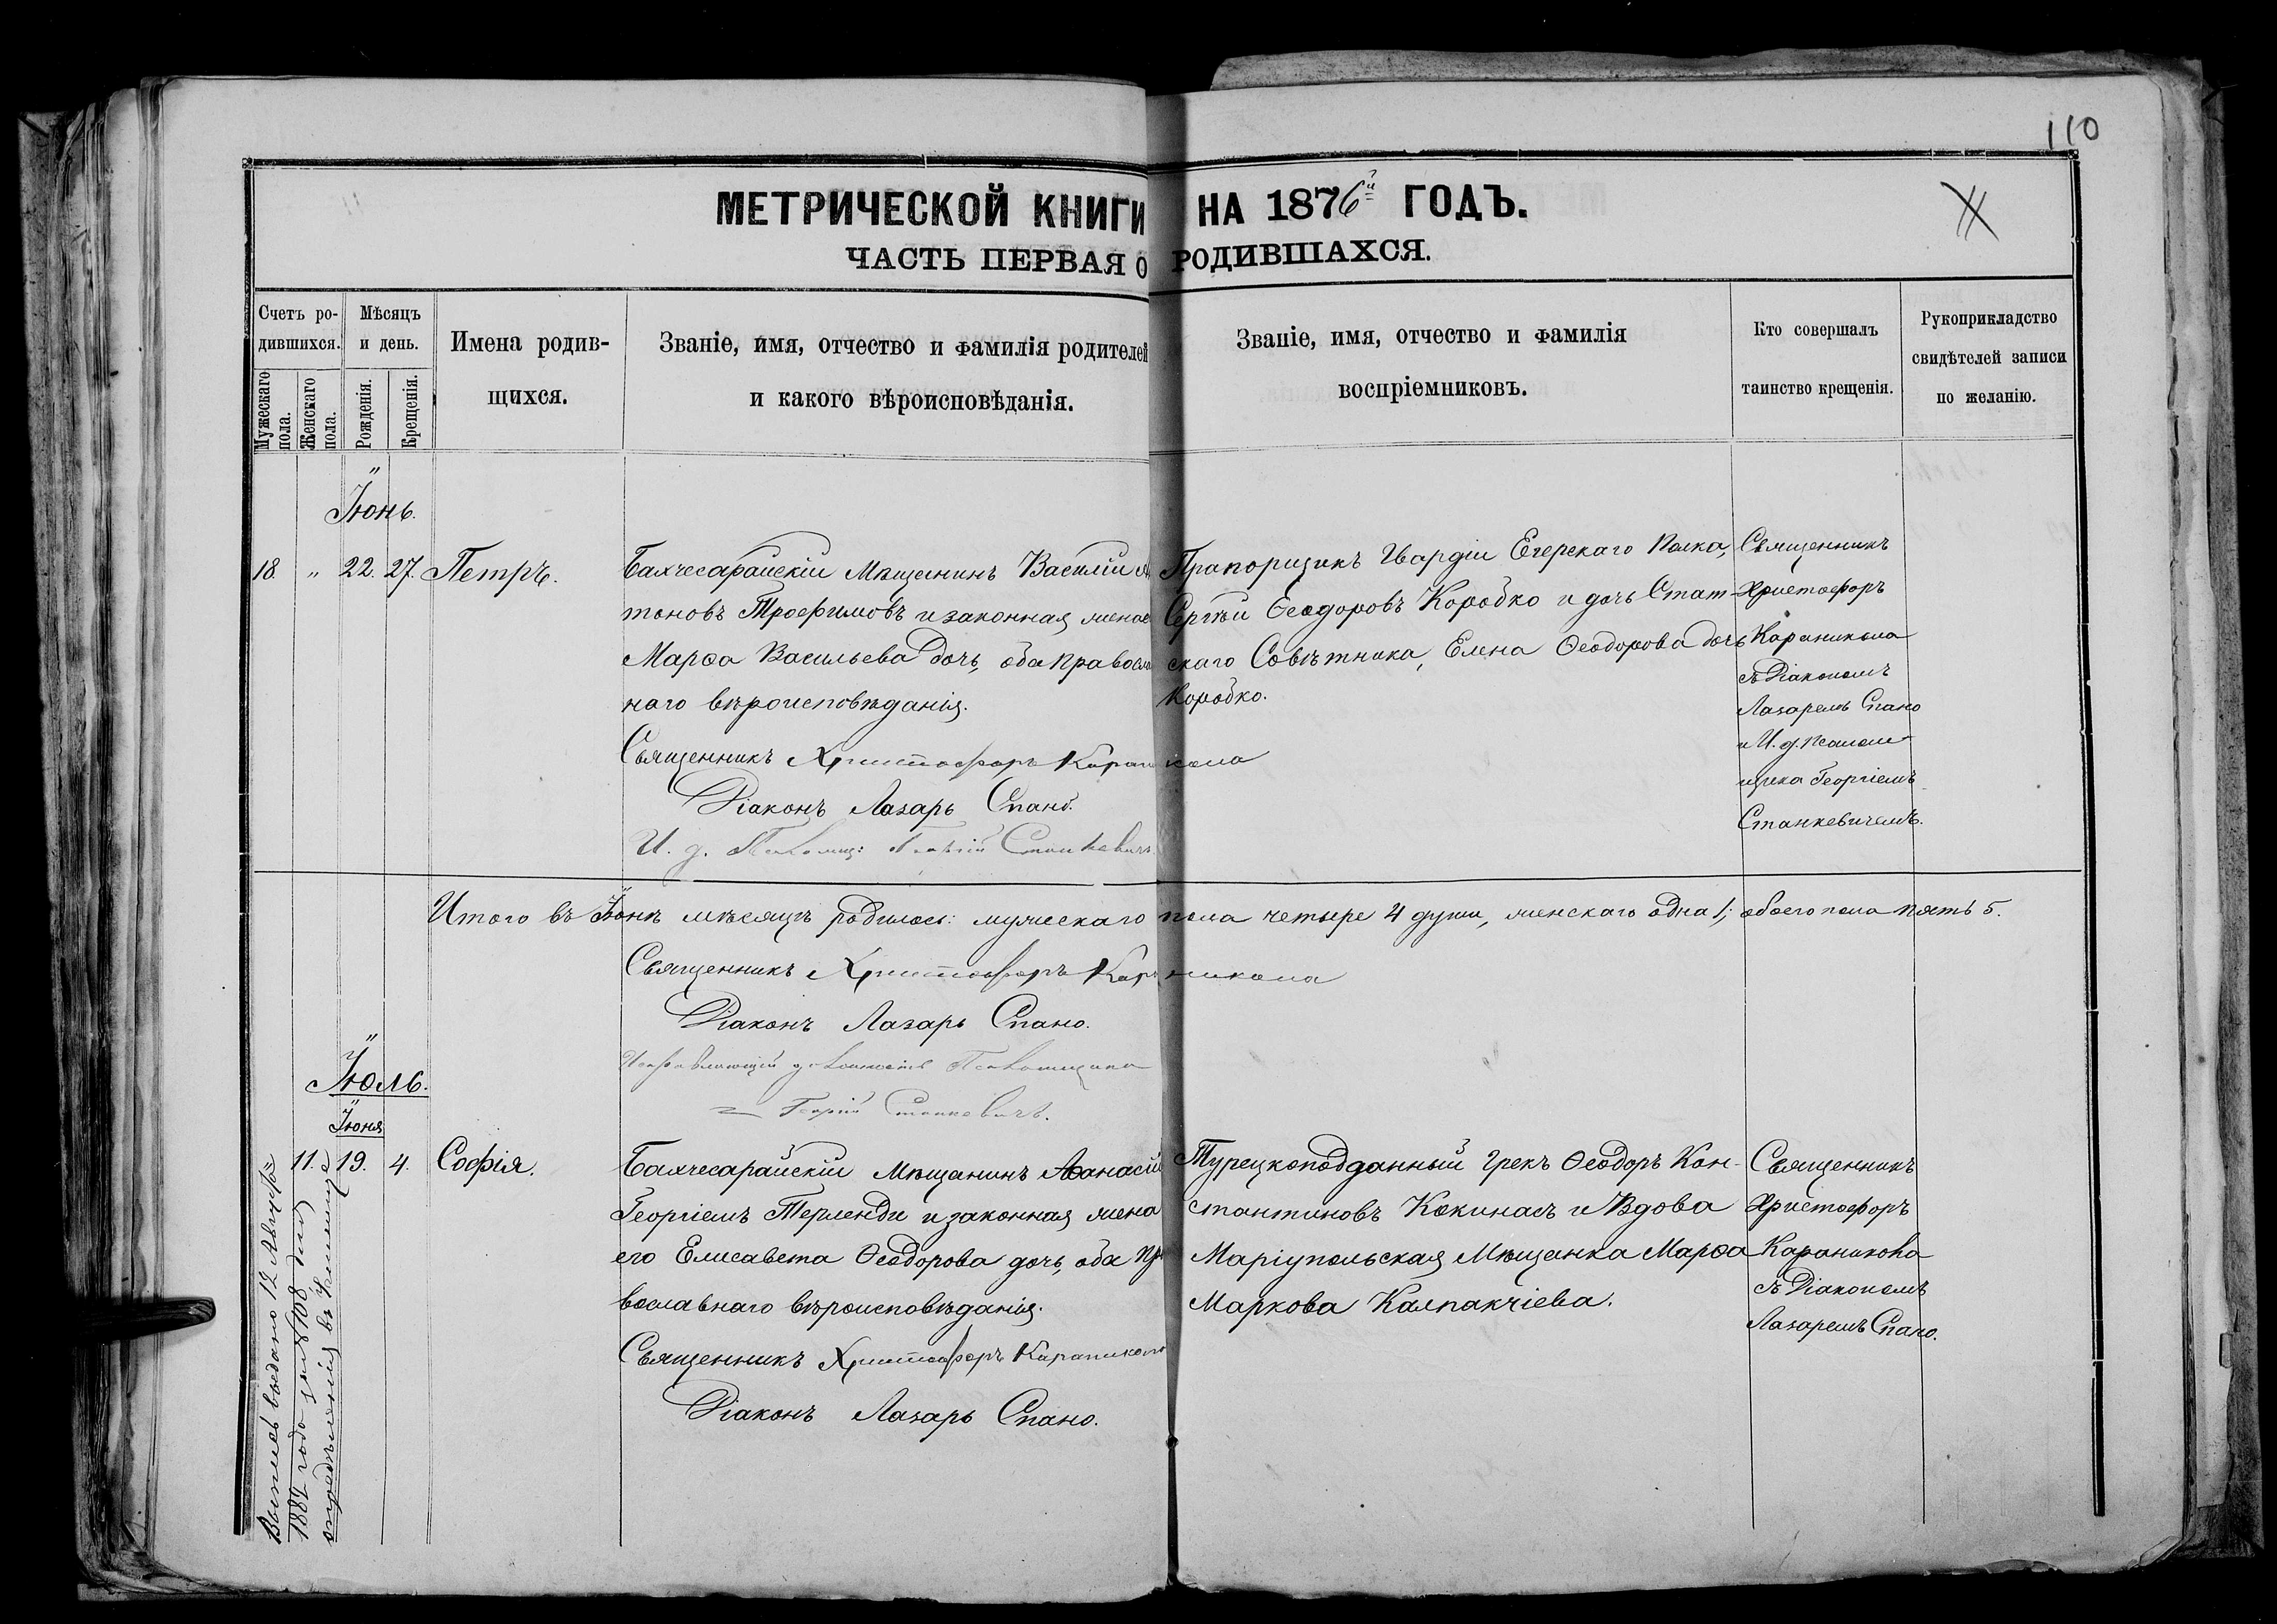 110
МЕТРИЧЕСКОЙ КНИГИ НА 1876й ГОДЪ.
ЧАСТЬ ПЕРВАЯ О РОДИВШАХСЯ.
Счетъ родившихся.
Мужескаго пола.
Женскаго пола.
Мѣсяцъ и день.
Рожденія.
Крещенія.
Имена родив-
щихся.
Званіе, имя, отчество и фамилія родителей
и какого вѣроисповѣданія.
Званіе, имя, отчество и фамилія
воспріемниковъ.
Кто совершалъ
таинство крещенія.
Рукоприкладство
свидѣтелей записи
по желанію.
Іюнь.
18. " 22. 27. Петръ.
Бахчесарайскій Мѣщанинъ Василій Ан
тоновъ Трофимовъ и законная жена его
Марѳа Васильева дочь, оба Православ
наго вѣроисповѣданія.
Священникъ Христофоръ Караникола
Діаконъ Лазарь Спано.
И. д. Псаломщ: Георгій Станкевичъ
Прапорщикъ Гвардіи Егерскаго Полка,
Сергѣй Ѳеодоровъ Коробко и дочь Стат-
скаго Совѣтника, Елена Ѳеодорова дочь
Коробко.
Священникъ
Христофоръ
Караникола
съ Діакономъ
Лазаремъ Спано
и И. д. Псалом-
щика Георгіемъ
Станкевичемъ.
Итого въ Іюнѣ мѣсяцѣ родилось: мужескаго пола четыре 4 души, женскаго одна 1; обоего пола пять 5.
Священникъ Христофоръ Караникола
Діаконъ Лазарь Спано.
Исправляющій должность Псаломщика
Георгій Станкевичъ.
Іюль.
Іюня
11. 19. 4. Софія.
Бахчесарайскій Мѣщанинъ Аѳанасій
Георгіевъ Терленди и законная жена
его Елисавета Ѳеодорова дочь, оба Пра
вославнаго вѣроисповѣданія.
Священникъ Христофоръ Караникола
Діаконъ Лазарь Спано.
Турецкоподданный Грекъ Ѳеодоръ Кон-
стантиновъ Кокинасъ и Вдова
Маріупольская Мѣщанка Марѳа
Маркова Калпакчіева.
Священникъ
Христофоръ
Караникола
съ Діакономъ
Лазаремъ Спано.
Выпись выдано 12 Августа
1882 года за №108 для
опредѣленія въ